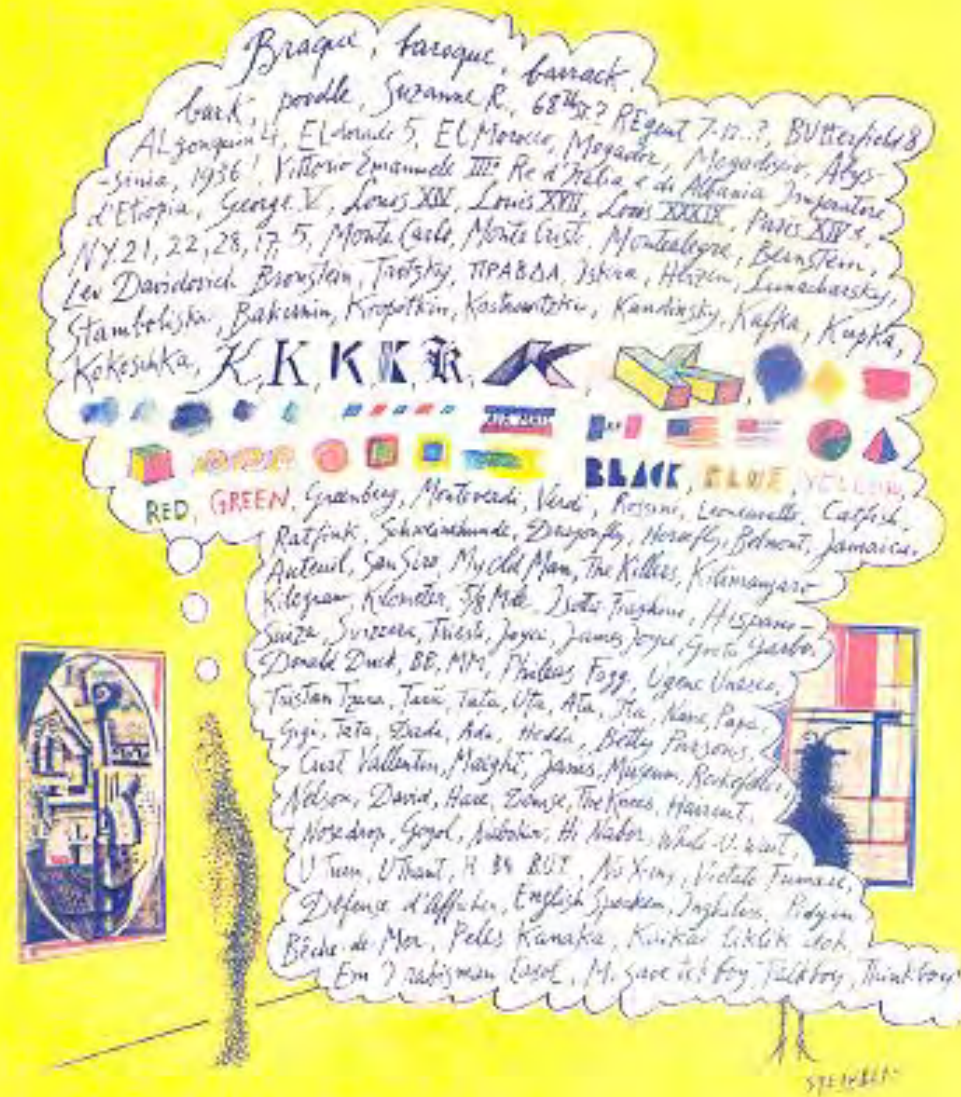 Braque, baroque, barrack,
bark, poodle, Suzanne R., 68th St.? REgent 7-12..?, BUtterfield 8
ALgonquin 4, ELdorado 5, EL Morocco, Mogador, Mogadiscio, Abys-
-sinia, 1936! Vittorio Emanuele III° Re d'Italia e di Albania Imperatore
d'Etiopia, George V, Louis XIV, Louis XVII, Louis XXXIX, Paris XIVe,
NY. 21, 22, 28, 17, 5, Monte Carlo, Monte Cristo, Montealegre, Bernstein,
Lev Davidovich Bronstein, Trotzky, ПРАВДА, Iskra, Herzen, Lunacharsky,
Stamboliski, Bakunin, Kropotkin, Kandinsky, Kafka, Kupka,
Kokoschka, K, K, K, K, K, K, K
AIR MAIL
BLACK, BLUE, YELLOW,
RED, GREEN, Greenberg, Monteverdi, Verdi, Rossini, Leoncavallo, Catfish,
Ratfink, Schweinehunde, Dragonfly, Horsefly, Belmont, Jamaica,
Auteuil, San Siro, My Old Man, The Killers, Kilimanjaro
Kilogram, Kilometer, 5/8 Mile, Isotta Fraschini, Hispano-
Suiza, Svizzera, Trieste, Joyce, James Joyce, Greta Garbo,
Donald Duck, BB, MM, Phileas Fogg, Ugene Unesco,
Tristan Tzara, Tata, Uta, Ata, Papa,
Gigi, Tata, Dada, Ada, Hedda, Betty Parsons,
Curt Vallentin, Maeght, Janis, Museum, Rockefeller,
Nelson, David, Hare, The Knees,
Nosedrop, Gogol, Hi Nabor,
U Turn, U Thant, Vietato Fumare,
Défense d'Afficher, English Spoken, Pidgin
Bêche de Mer, Kanaka, Kaikai liklik dok,
Talkboy, Thinkboy
STEINBERG